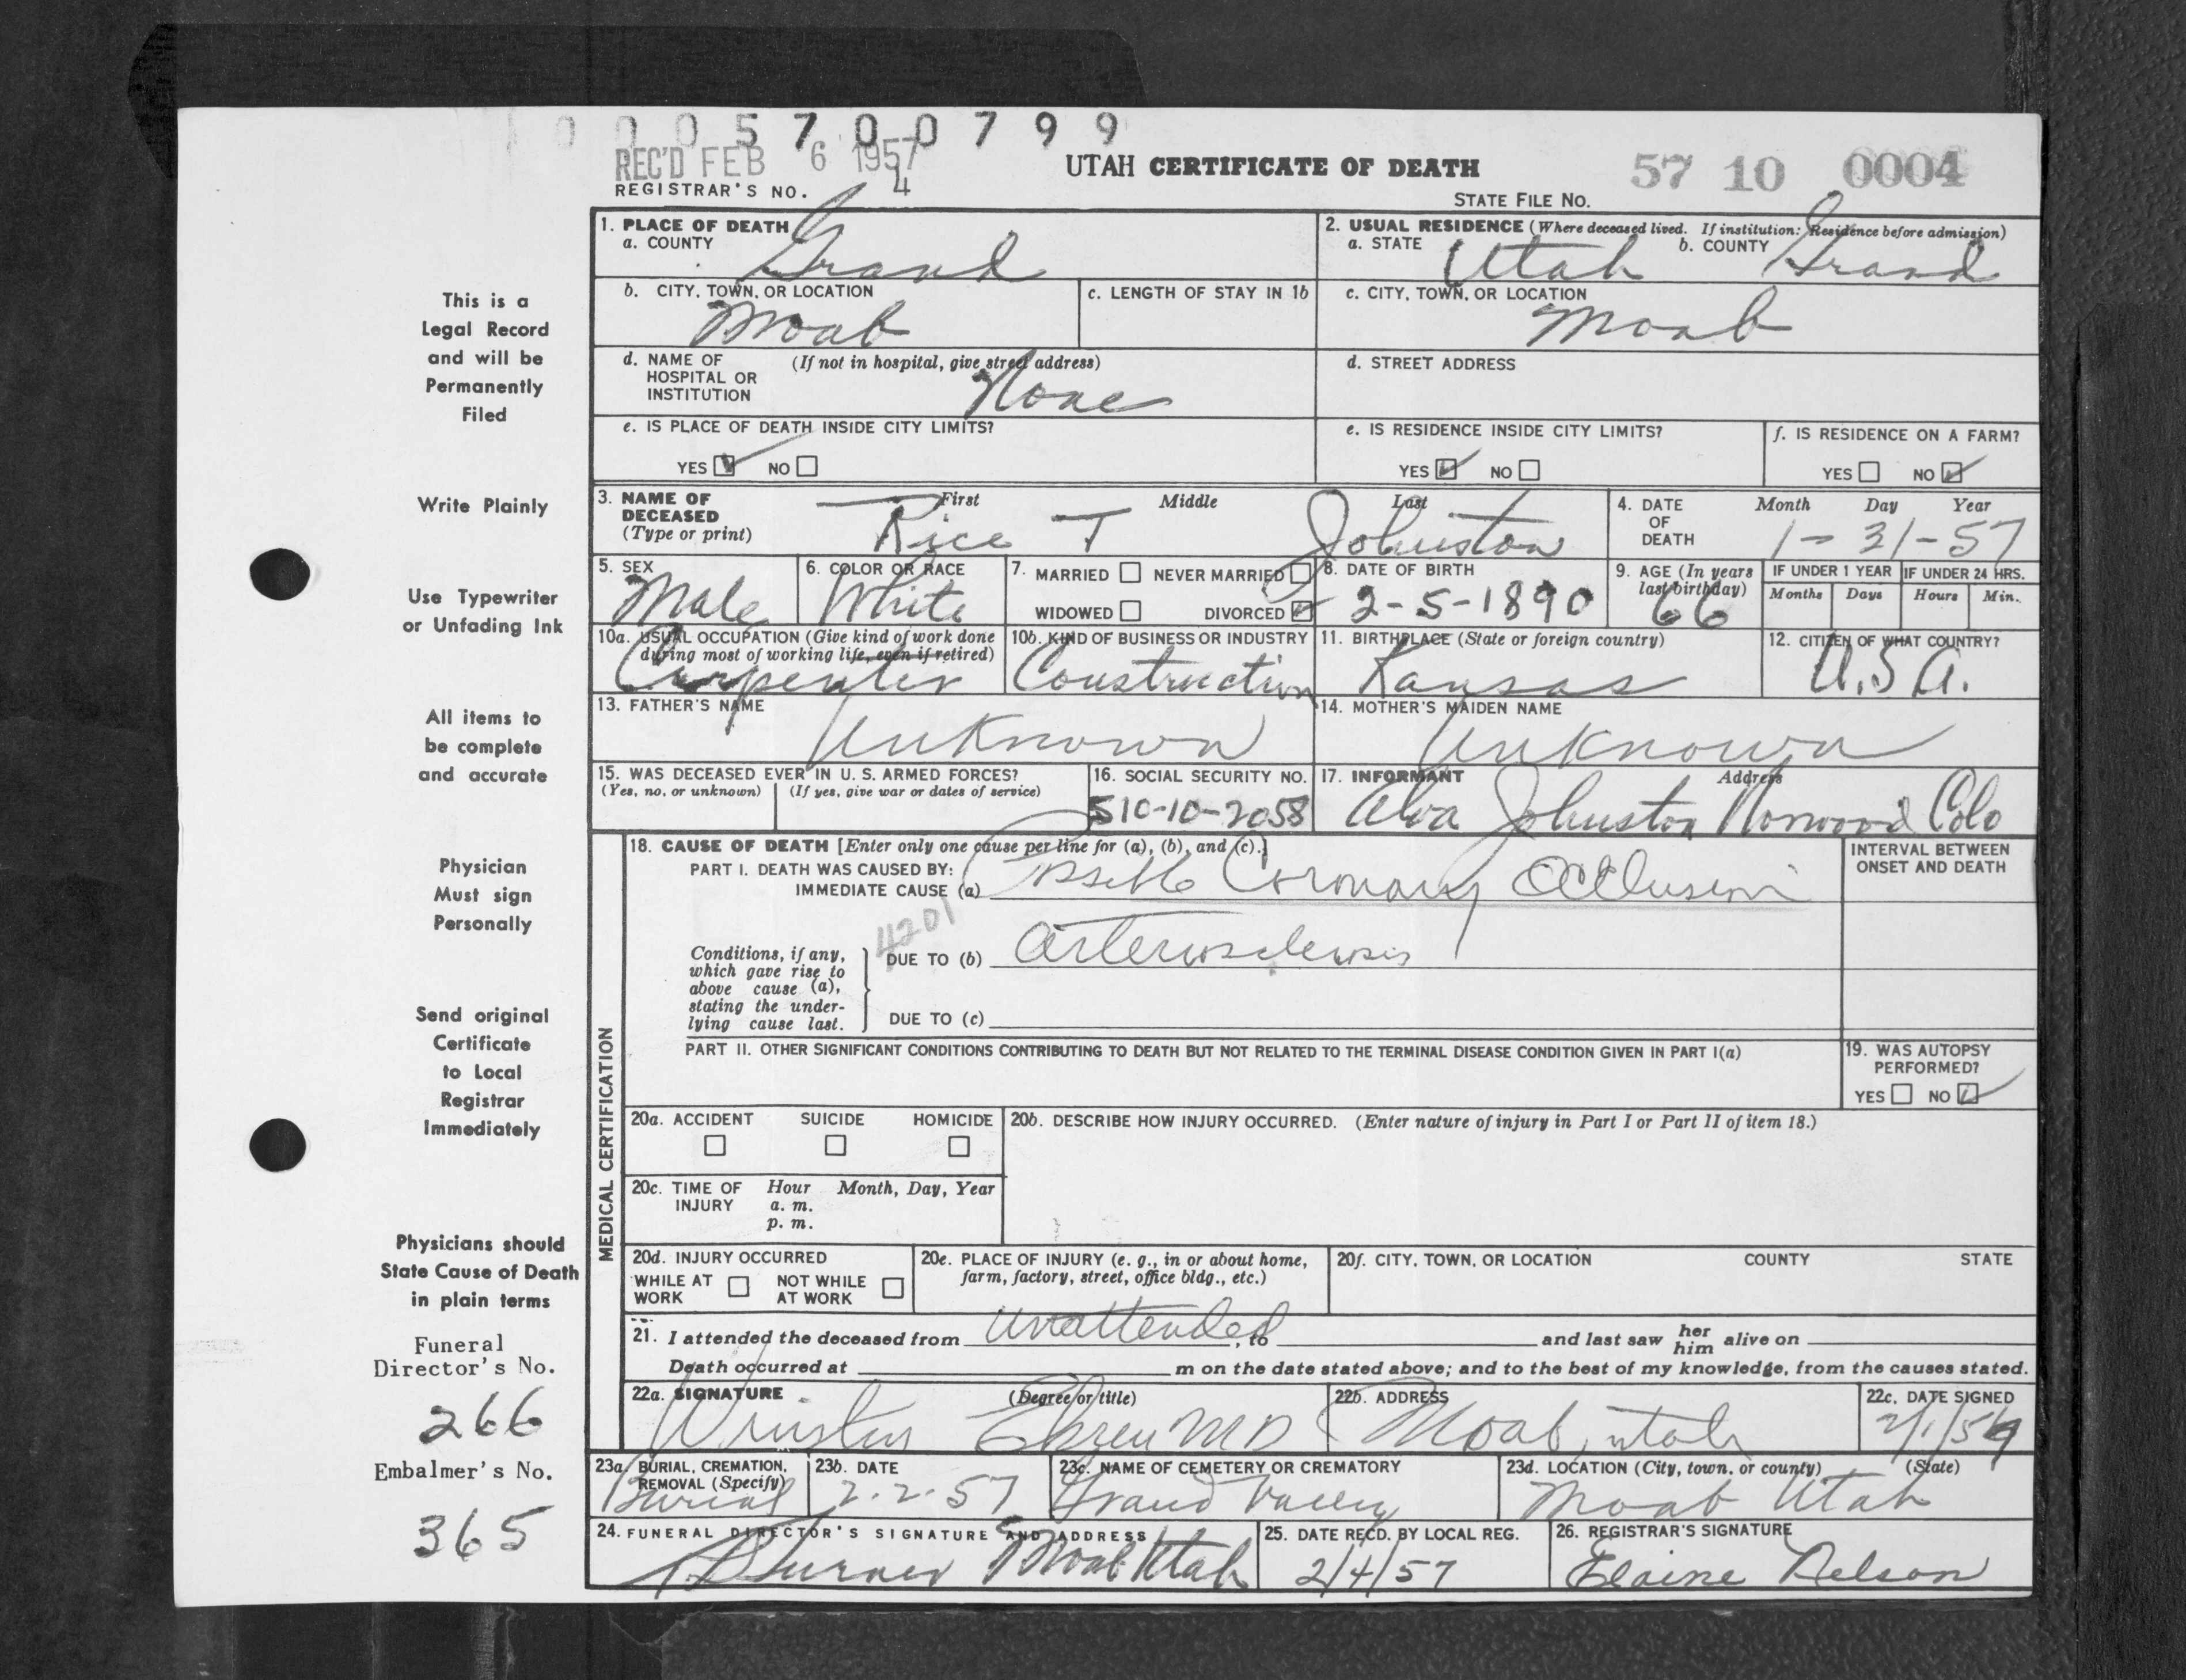 0 0 0 5 7 0 0 7 9 9
REC'D FEB 6 1957
UTAH CERTIFICATE OF DEATH
57 10 0004
REGISTRAR'S NO. 4
STATE FILE NO.
This is a
Legal Record
and will be
Permanently
Filed
Write Plainly
Use Typewriter
or Unfading Ink
All items to
be complete
and accurate
Physician
Must sign
Personally
Send original
Certificate
to Local
Registrar
Immediately
Physicians should
State Cause of Death
in plain terms
Funeral
Director's No.
266
Embalmer's No.
365
1. PLACE OF DEATH
a. COUNTY Grand
2. USUAL RESIDENCE (Where deceased lived. If institution: Residence before admission)
a. STATE Utah b. COUNTY Grand
b. CITY, TOWN, OR LOCATION
Moab
c. LENGTH OF STAY IN 1b
c. CITY, TOWN, OR LOCATION
Moab
d. NAME OF HOSPITAL OR INSTITUTION (If not in hospital, give street address)
None
d. STREET ADDRESS
e. IS PLACE OF DEATH INSIDE CITY LIMITS?
YES NO
e. IS RESIDENCE INSIDE CITY LIMITS?
YES NO
f. IS RESIDENCE ON A FARM?
YES NO
3. NAME OF DECEASED (Type or print)
First Middle Last
Rice T Johnston
4. DATE OF DEATH
Month Day Year
1-31-57
5. SEX
Male
6. COLOR OR RACE
White
7. MARRIED NEVER MARRIED
WIDOWED DIVORCED
8. DATE OF BIRTH
2-5-1890
9. AGE (In years last birthday)
66
IF UNDER 1 YEAR
Months Days
IF UNDER 24 HRS.
Hours Min.
10a. USUAL OCCUPATION (Give kind of work done during most of working life, even if retired)
Carpenter
10b. KIND OF BUSINESS OR INDUSTRY
Construction
11. BIRTHPLACE (State or foreign country)
Kansas
12. CITIZEN OF WHAT COUNTRY?
U.S.A.
13. FATHER'S NAME
Unknown
14. MOTHER'S MAIDEN NAME
Unknown
15. WAS DECEASED EVER IN U. S. ARMED FORCES?
(Yes, no, or unknown) (If yes, give war or dates of service)
16. SOCIAL SECURITY NO.
510-10-2058
17. INFORMANT Address
Alva Johnston Norwood Colo
MEDICAL CERTIFICATION
18. CAUSE OF DEATH [Enter only one cause per line for (a), (b), and (c).]
PART I. DEATH WAS CAUSED BY:
IMMEDIATE CAUSE (a) Possible Coronary Occlusion
INTERVAL BETWEEN ONSET AND DEATH
4201
Conditions, if any, which gave rise to above cause (a), stating the underlying cause last.
DUE TO (b) Arteriosclerosis
DUE TO (c)
PART II. OTHER SIGNIFICANT CONDITIONS CONTRIBUTING TO DEATH BUT NOT RELATED TO THE TERMINAL DISEASE CONDITION GIVEN IN PART I(a)
19. WAS AUTOPSY PERFORMED?
YES NO
20a. ACCIDENT SUICIDE HOMICIDE
20b. DESCRIBE HOW INJURY OCCURRED. (Enter nature of injury in Part I or Part II of item 18.)
20c. TIME OF INJURY Hour Month, Day, Year
a. m.
p. m.
20d. INJURY OCCURRED
WHILE AT WORK NOT WHILE AT WORK
20e. PLACE OF INJURY (e. g., in or about home, farm, factory, street, office bldg., etc.)
20f. CITY, TOWN, OR LOCATION COUNTY STATE
21. I attended the deceased from Unattended, to and last saw her him alive on
Death occurred at m on the date stated above; and to the best of my knowledge, from the causes stated.
22a. SIGNATURE (Degree or title)
Winston Ekren MD
22b. ADDRESS
Moab, Utah
22c. DATE SIGNED
2/1/57
23a. BURIAL, CREMATION, REMOVAL (Specify)
Burial
23b. DATE
2-2-57
23c. NAME OF CEMETERY OR CREMATORY
Grand Valley
23d. LOCATION (City, town, or county) (State)
Moab Utah
24. FUNERAL DIRECTOR'S SIGNATURE AND ADDRESS
Turner Moab Utah
25. DATE RECD. BY LOCAL REG.
2/4/57
26. REGISTRAR'S SIGNATURE
Elaine Nelson